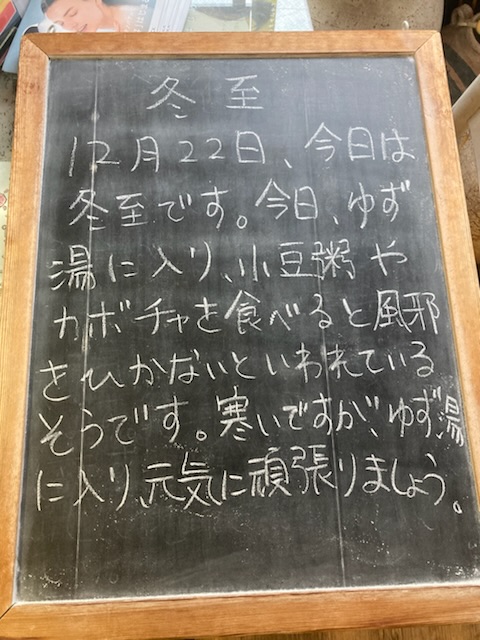 冬至
12月22日、今日は
冬至です。今日、ゆず
湯に入り、小豆粥や
カボチャを食べると風邪
をひかないといわれている
そうです。寒いですが、ゆず湯
に入り、元気に頑張りましょう。